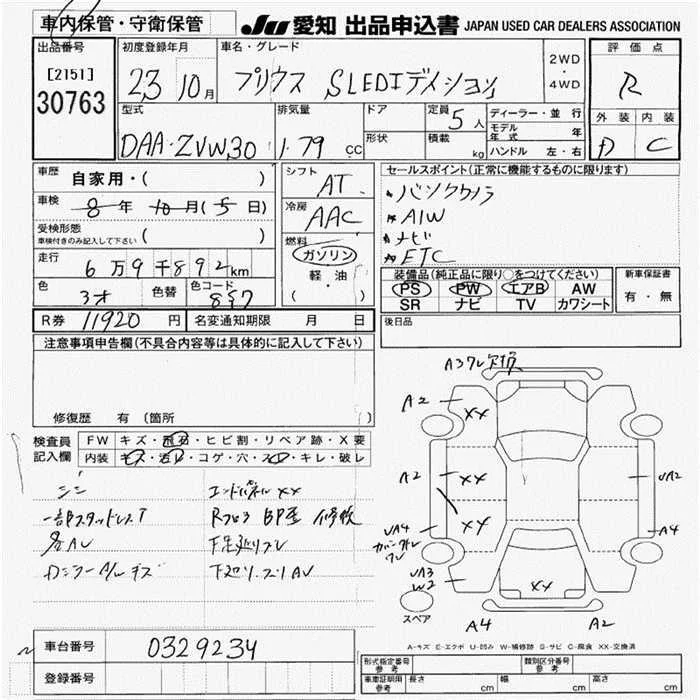 車内保管・守衛保管
JU 愛知 出品申込書 JAPAN USED CAR DEALERS ASSOCIATION
出品番号
[2151]
30763
初度登録年月
23 10月
車名・グレード
プリウス SLEDエディション
2WD
・
4WD
評価点
R
外装 内装
D C
型式
DAA・ZVW30
排気量
1.79 CC
ドア
形状
定員 5人
積載 kg
ディーラー・並行
モデル年式 年
ハンドル 左・右
車歴
自家用・( )
車検
8年 10月(5日)
受検形態
車検付きのみ記入して下さい
( )
走行
6万9千892km
色
色替
色コード
8S7
シフト
AT
冷房
AAC
燃料
ガソリン
軽・油
( )
セールスポイント(正常に機能するものに限ります)
A1W
ナビ
ETC
装備品(純正品に限り○をつけてください)
PS PW エアB AW
SR ナビ TV カワシート
新車保証書
有・無
R券 11920円
名変通知期限 月 日
後日品
注意事項申告欄(不具合内容等は具体的に記入して下さい)
修復歴 有(箇所 )
検査員
記入欄
FW キズ・飛石・ヒビ割・リペア跡・X要
内装 キズ・汚レ・コゲ・穴・スレ・キレ・破レ
一部スタッドレスT
エンドパネルXX
下廻りフレ
A2
XX
A2
XX
XX
UA2
UA4
A4
UA3
W2
XX
スペア
A4
A2
A-キズ E-エクボ U-凹み W-補修跡 S-サビ C-腐食 XX-交換済
車台番号 0329234
登録番号
形式指定番号
参考
類別区分番号
参考
車庫証明用
参考
長さ cm
幅 cm
高さ cm